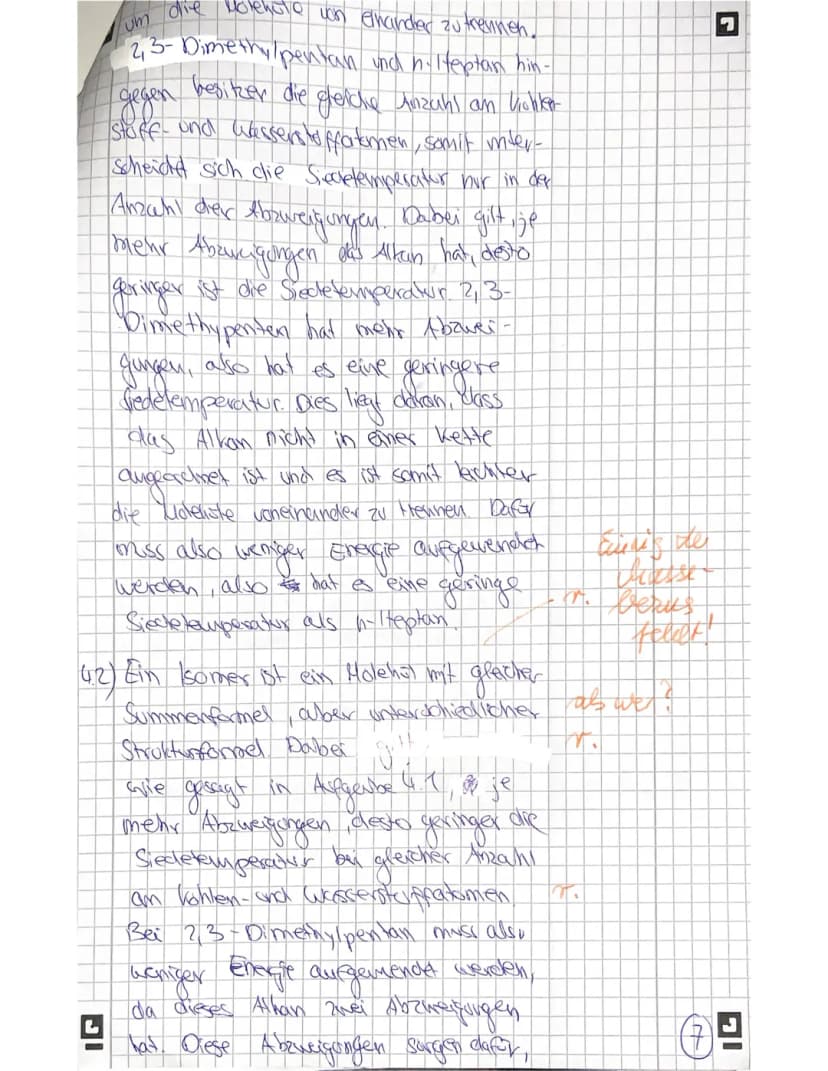 um die Moleküle von einander zu trennen.
2,3-Dimethylpentan und n-Heptan hin-
gegen besitzen die gleiche Anzahl an Kohlen-
stoff- und Wasserstoffatomen, somit unter-
scheidet sich die Siedetemperatur nur in der
Anzahl der Abzweigungen. Dabei gilt, je
mehr Abzweigungen das Alkan hat, desto
geringer ist die Siedetemperatur. 2,3-
Dimethypentan hat mehr Abzwei-
gungen, also hat es eine geringere
Siedetemperatur. Dies liegt daran, dass
das Alkan nicht in einer Kette
angeordnet ist und es ist somit leichter
die Moleküle voneinander zu trennen. Dafür
muss also weniger Energie aufgewendet
werden, also hat es eine geringe
Siedetemperatur als n-Heptan.
r. bezug
fehlt!
4.2) Ein Isomer ist ein Molekül mit gleicher
Summenformel, aber unterschiedlicher
als wer?
Strukturformel. Dabei gilt
r.
wie gesagt in Aufgabe 4.1, je
mehr Abzweigungen, desto geringer die
Siedetemperatur bei gleicher Anzahl
an Kohlen- und Wasserstoffatomen.
r.
Bei 2,3-Dimethylpentan muss also
weniger Energie aufgewendet werden,
da dieses Alkan zwei Abzweigungen
hat. Diese Abzweigungen sorgen dafür,
7